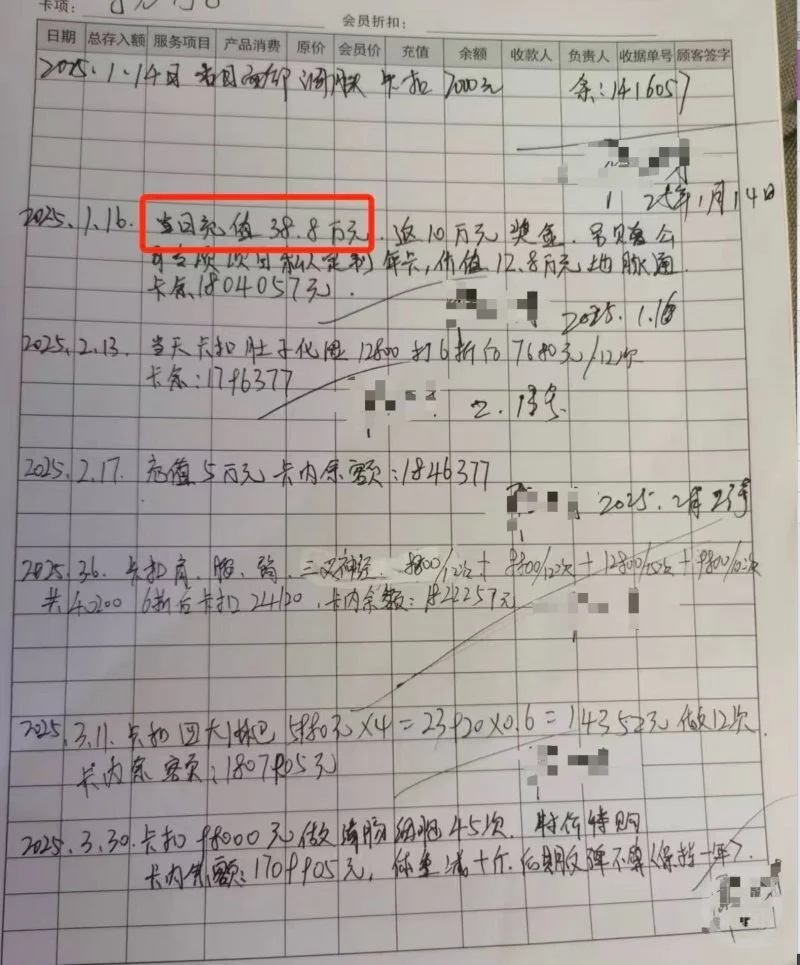 卡项:
会员折扣:
日期 总存入额 服务项目 产品消费 原价 会员价 充值 余额 收款人 负责人 收据单号 顾客签字
2025.1.14日 当日 调 卡扣 7000元 余:1416057
25年1月14日
2025.1.16. 当日充值38.8万元. 返10万元奖金.
年卡,价值12.8万元 通
卡余1804057元.
2025.1.16
2025.2.13. 当天卡扣肚子化 12800打6折后7680元/12次
卡余:1796377
2. 13号
2025.2.17. 充值5万元 卡内余额:1846377
2025.2月 号
2025.3.6. 卡扣肩. 三叉神经. 9800/12次+9800/12次+12800/ 次+9800/ 次
共40200 6折后卡扣24120.卡内余额:1822257元
2025.3.11. 卡扣四大淋巴 5980元×4=23920×0.6=14352元 做12次.
卡内余额:1807905元
2025.3.30.卡扣98000元做 45次. 特价特购
卡内余额:1709905元, 体重减十斤.后期反弹不算(保持一年).